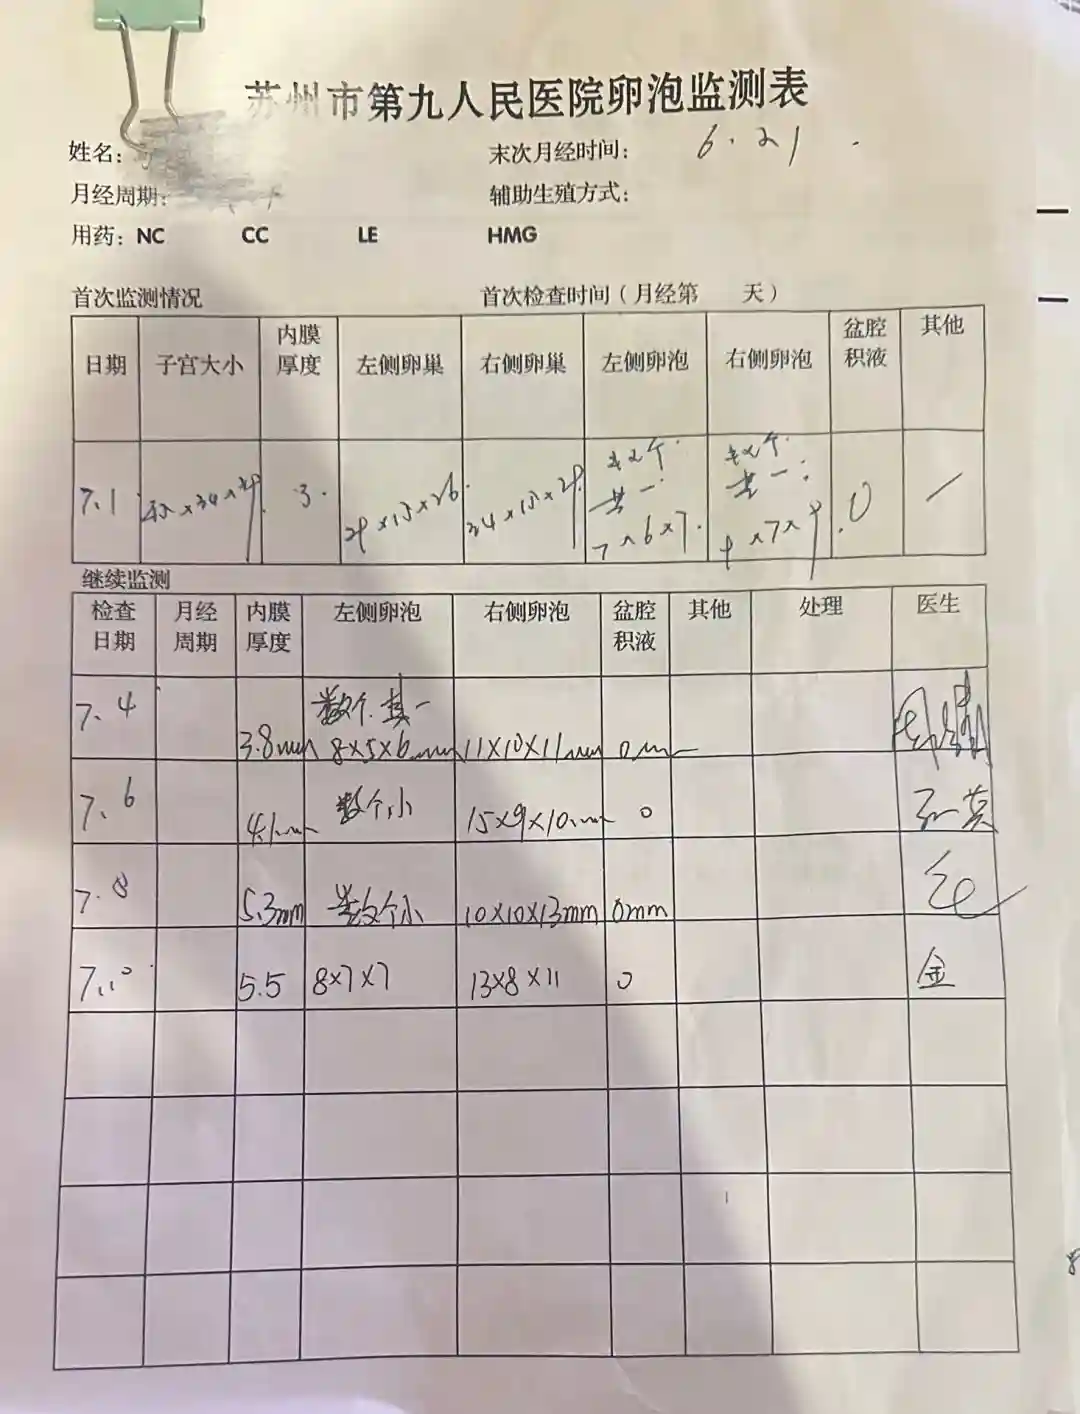 苏州市第九人民医院卵泡监测表
姓名: 末次月经时间: 6.21.
月经周期: 辅助生殖方式:
用药: NC CC LE HMG
首次监测情况 首次检查时间（月经第 天）
日期 子宫大小 内膜厚度 左侧卵巢 右侧卵巢 左侧卵泡 右侧卵泡 盆腔积液 其他
数个 数个
其一 其一:
7.1 3. 7×6×7. 0 /
继续监测
检查日期 月经周期 内膜厚度 左侧卵泡 右侧卵泡 盆腔积液 其他 处理 医生
数个.其一
7.4 3.8mm 8×5×6mm 11×10×11mm 0mm
7.6 4.1mm 数个小 15×9×10mm 0
7.8 5.3mm 数个小 10×10×13mm 0mm
7.10 5.5 8×7×7 13×8×11 0 金